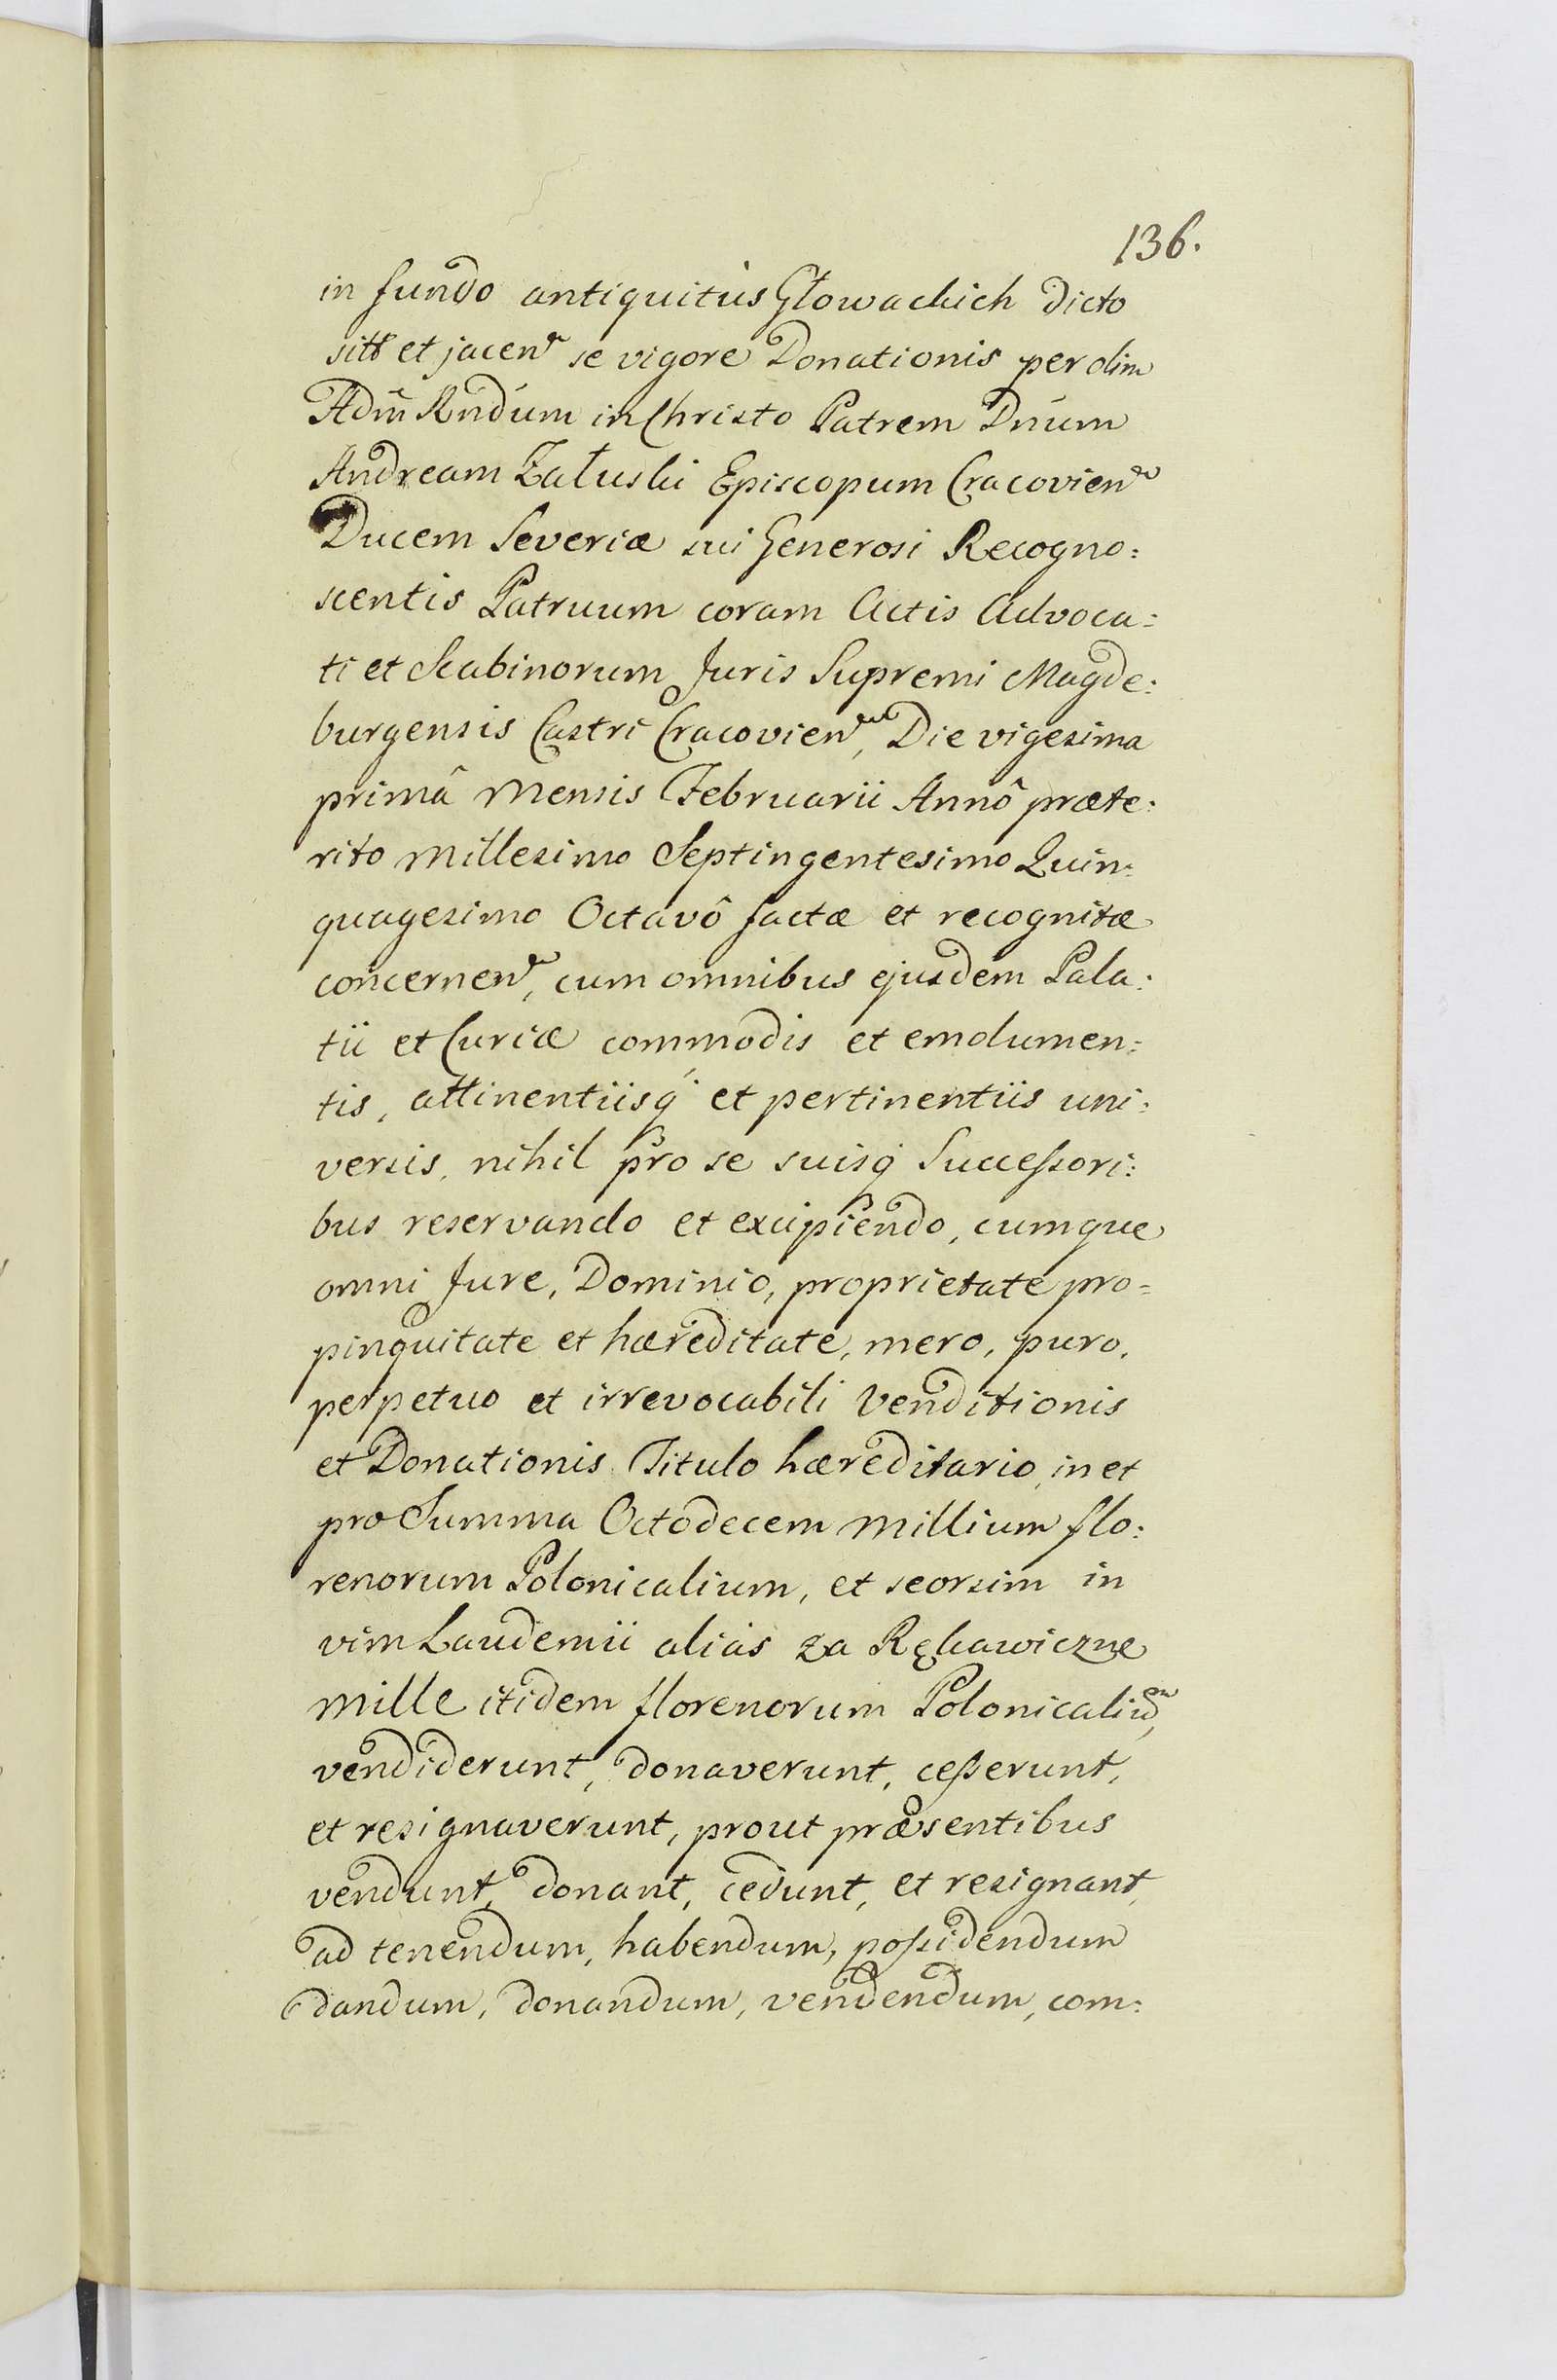 136.
in fundo antiquitùs Głowackich dicto
sitt et jacen se vigore Donationis per olim
Adm̃ Rñdum in Christo Patrem Dñum
Andream Załuski Episcopum Cracovien
Ducem Severiæ sui Generosi Recogno:
scentis Patruum coram Actis Advoca:
ti et Scabinorum Juris Supremi Magde:
burgensis Castri Cracovien, Die vigesima
primâ Mensis Februarii Annô præte:
rito Millesimo Septingentesimo Quin:
quagesimo Octavô factæ et recognitæ
concernen, cum omnibus ejusdem Pala:
tii et Curiæ commodis et emolumen:
tis, attinentiisq́ et pertinentiis uni:
versis, nihil pro se suisq́ Succeſsori:
bus reservando et excipiendo, cumque
omni Jure, Dominio, proprietate pro=
pinquitate et hæreditate, mero, puro,
perpetuo et irrevocabili Venditionis
et Donationis Titulo hæreditario, in et
pro Summa Octodecem Millium flo:
renorum Polonicalium, et seorsim in
vim Laudemii aliàs za Rękawiczne
Mille itidem florenorum Polonicaliũ,
vendiderunt, donaverunt, ceſserunt,
et resignaverunt, prout præsentibus
vendunt, donant, cedunt, et resignant,
ad tenendum, habendum, poſsidendum
dandum, donandum, vendendum, com: